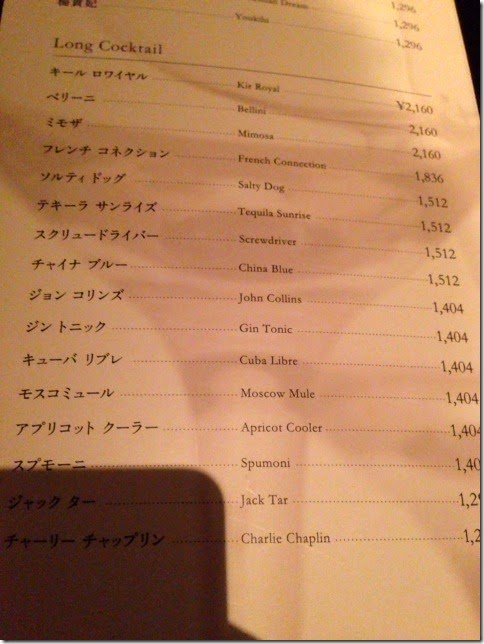 1,296
Dream 1,296
楊貴妃 Youkihi 1,296
Long Cocktail
キール ロワイヤル Kir Royal ¥2,160
ベリーニ Bellini 2,160
ミモザ Mimosa 2,160
フレンチ コネクション French Connection 1,836
ソルティ ドッグ Salty Dog 1,512
テキーラ サンライズ Tequila Sunrise 1,512
スクリュードライバー Screwdriver 1,512
チャイナ ブルー China Blue 1,512
ジョン コリンズ John Collins 1,404
ジン トニック Gin Tonic 1,404
キューバ リブレ Cuba Libre 1,404
モスコミュール Moscow Mule 1,404
アプリコット クーラー Apricot Cooler 1,404
スプモーニ Spumoni 1,40
ジャック ター Jack Tar 1,29
チャーリー チャップリン Charlie Chaplin 1,2